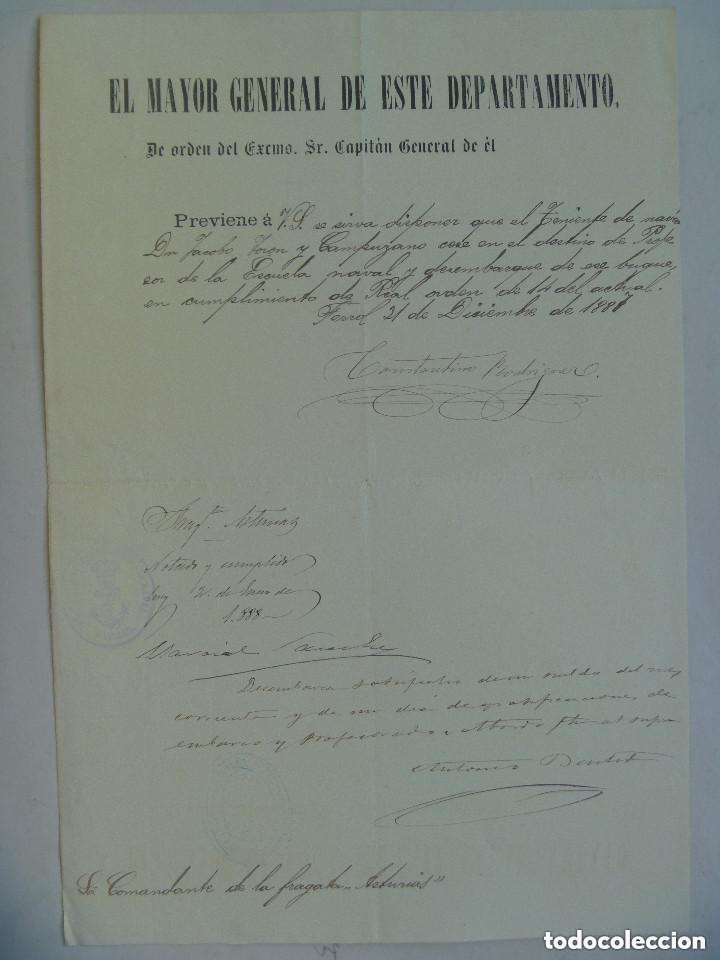 EL MAYOR GENERAL DE ESTE DEPARTAMENTO.
De orden del Excmo. Sr. Capitán General de él
Previene á V.S. se sirva disponer que el Teniente de navio
Dn Jacobo Toron y Campuzano cese en el destino de Profe
sor de la Escuela naval y desembarque de ese buque,
en cumplimiento de Real orden de 14 del actual.
Ferrol 21 de Diciembre de 1887
Constantino Rodriguez.
Fragta Asturias
Notado y cumplido
hoy 2 de Enero de
1.888
Desembarca satisfecho de su sueldo del mes
corriente y de un dia de gratificaciones de
embarco y profesorado. Abordo
Antonio
Sr. Comandante de la fragata "Asturias"
todocoleccion
todocoleccion.net